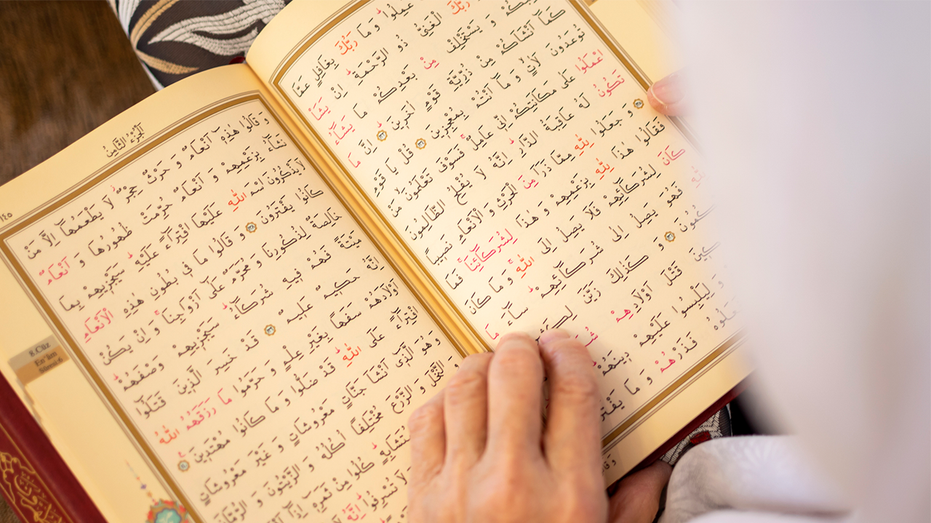 عَمِلُوا وَ مَا رَبُّكَ بِغَافِلٍ عَمَّا
رَبُّكَ الْغَنِيُّ ذُو الرَّحْمَةِ اِنْ يَشَأْ
وَ يَسْتَخْلِفْ مِنْ بَعْدِكُمْ مَا يَشَٓاءُ
كَمَٓا اَنْشَاَكُمْ مِنْ ذُرِّيَّةِ قَوْمٍ اٰخَرِينَ اِنَّ مَا
تُوعَدُونَ لَاٰتٍ وَ مَٓا اَنْتُمْ بِمُعْجِزِينَ قُلْ يَا قَوْمِ
اعْمَلُوا عَلٰى مَكَانَتِكُمْ اِنِّي عَامِلٌ فَسَوْفَ تَعْلَمُونَ مَنْ
تَكُونُ لَهُ عَاقِبَةُ الدَّارِ اِنَّهُ لَا يُفْلِحُ الظَّالِمُونَ
وَ جَعَلُوا لِلّٰهِ مِمَّا ذَرَاَ مِنَ الْحَرْثِ وَ الْاَنْعَامِ نَصِيبًا
فَقَالُوا هٰذَا لِلّٰهِ بِزَعْمِهِمْ وَ هٰذَا لِشُرَكَٓائِنَا فَمَا
كَانَ لِشُرَكَٓائِهِمْ فَلَا يَصِلُ اِلَى اللّٰهِ وَ مَا كَانَ
فَهُوَ يَصِلُ اِلٰى شُرَكَٓائِهِمْ سَٓاءَ مَا
وَ كَذٰلِكَ زَيَّنَ
قَتْلَ اَوْلَادِهِمْ
وَ لِيَلْبِسُوا عَلَيْهِمْ دِينَهُمْ
فَذَرْهُمْ وَ مَا
اَلْجُزْءُ الثَّامِنُ
وَ قَالُوا هٰذِهِ اَنْعَامٌ وَ حَرْثٌ حِجْرٌ لَا يَطْعَمُهَٓا اِلَّا مَنْ
نَشَٓاءُ بِزَعْمِهِمْ وَ اَنْعَامٌ حُرِّمَتْ ظُهُورُهَا وَ اَنْعَامٌ
لَا يَذْكُرُونَ اسْمَ اللّٰهِ عَلَيْهَا افْتِرَٓاءً عَلَيْهِ سَيَجْزِيهِمْ بِمَا
كَانُوا يَفْتَرُونَ وَ قَالُوا مَا فِي بُطُونِ هٰذِهِ الْاَنْعَامِ
خَالِصَةٌ لِذُكُورِنَا وَ مُحَرَّمٌ عَلٰٓى اَزْوَاجِنَا وَ اِنْ يَكُنْ
مَيْتَةً فَهُمْ فِيهِ شُرَكَٓاءُ سَيَجْزِيهِمْ وَصْفَهُمْ
اِنَّهُ حَكِيمٌ عَلِيمٌ قَدْ خَسِرَ الَّذِينَ قَتَلُٓوا
اَوْلَادَهُمْ سَفَهًا بِغَيْرِ عِلْمٍ وَ حَرَّمُوا مَا رَزَقَهُمُ اللّٰهُ
افْتِرَٓاءً عَلَى اللّٰهِ قَدْ ضَلُّوا وَ مَا كَانُوا مُهْتَدِينَ
وَ هُوَ الَّذِٓي اَنْشَاَ جَنَّاتٍ مَعْرُوشَاتٍ وَ غَيْرَ مَعْرُوشَاتٍ
النَّخْلَ وَ الزَّرْعَ مُخْتَلِفًا اُكُلُهُ وَ الزَّيْتُونَ وَ الرُّمَّانَ
كُلُوا مِنْ ثَمَرِهِ